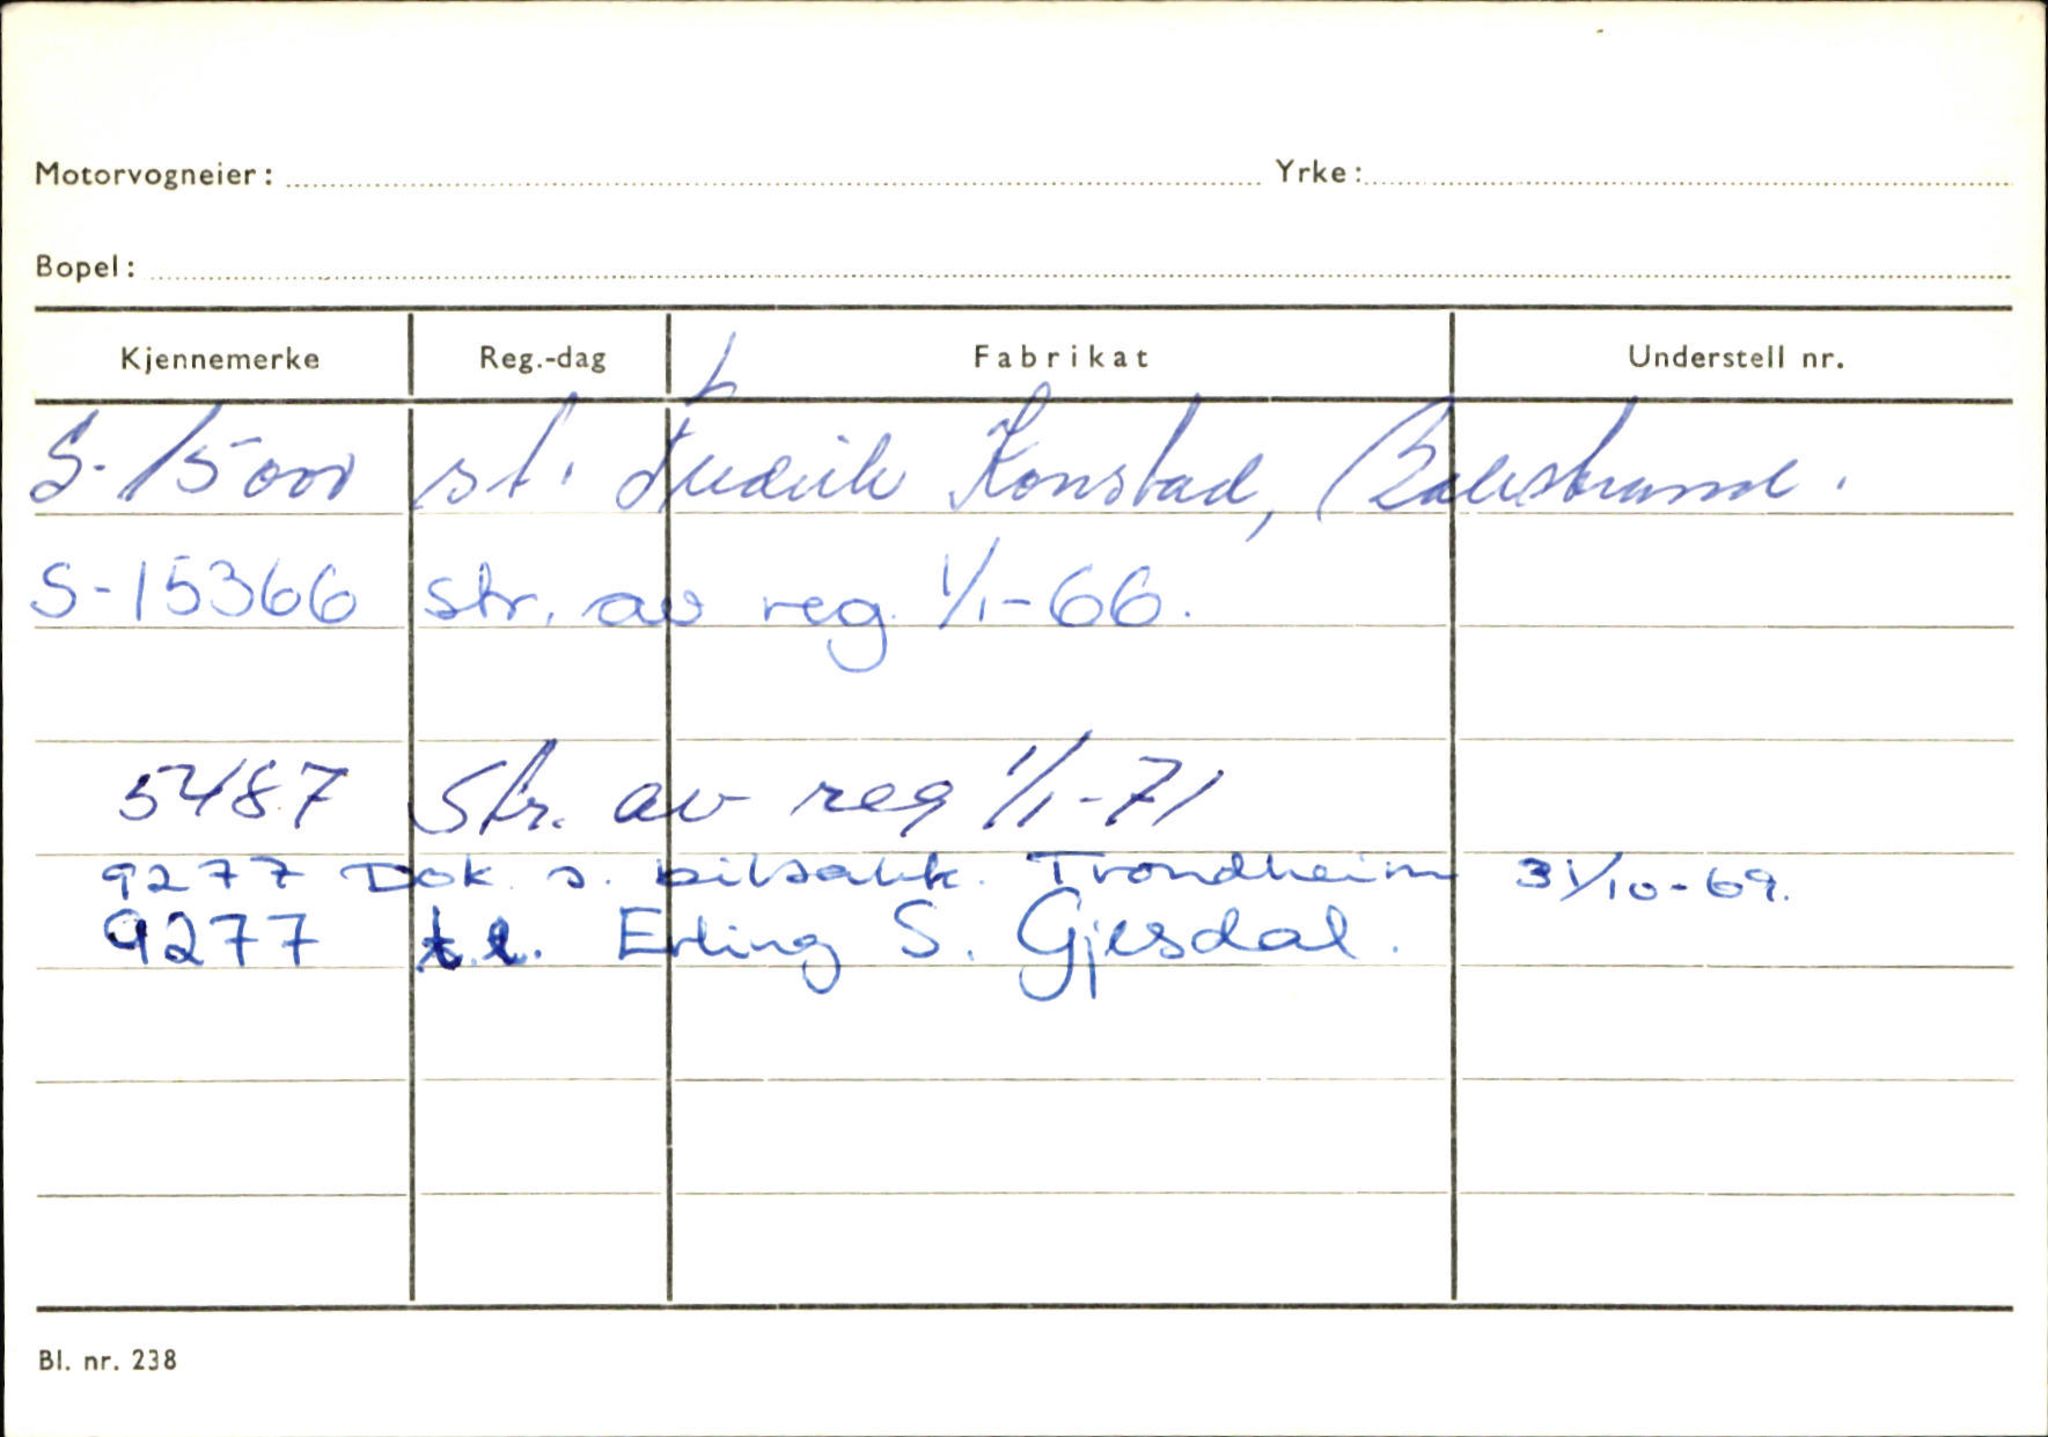 Motorvogneier: Yrke:
Bopel:
Kjennemerke Reg.-dag Fabrikat Understell nr.
S-15000 st. Fredrik Konstad, Balestrand.
S-15366 str. av reg. 1/1-66.
5487 Str. av reg 1/1-71
9277 Dok. s. bilsakk. Trondheim 31/10-69.
9277 t.l. Erling S. Gjesdal.
Bl. nr. 238